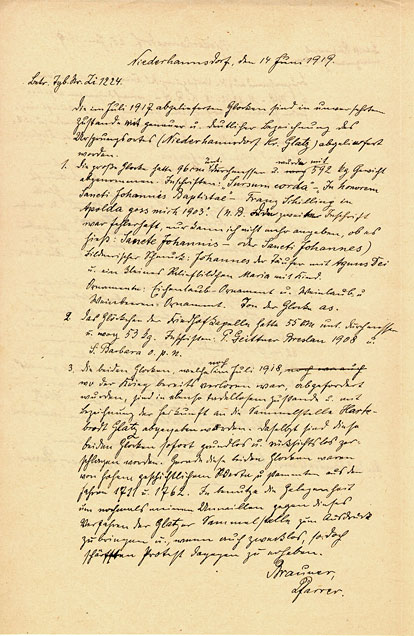 Niederhannsdorf, den 14 Juni 1919.
Betr. Tgb. Nr. Li 1224.
Die im Juli 1917 abgelieferten Glocken sind in unversehrtem
Zustande mit genauer u. deutlicher Bezeichnung des
Ursprungsortes (Niederhannsdorf Kr. Glatz) abgeliefert
worden.
1. Die große Glocke hatte 96 cm Durchmesser u. wurde mit 592 kg Gewicht
abgenommen. Inschriften: "Sursum corda" - In honorem
Sancti Johannis Baptistae - Franz Schilling in
Apolda goss mich 1903. (N.B. Die zweite Inschrift
war fehlerhaft, nur kann ich nicht mehr angeben, ob es
hieß: Sancte Johannis - oder Sancti Johannes)
Bildnerischer Schmuck: Johannes der Täufer mit Agnus Dei
u. ein kleines Reliefbildchen Maria mit Kind.
Ornamente: Eichenlaub-Ornament u. Weinlaub u.
Weinbeeren-Ornament. Ton der Glocke as.
2. Das Glöckchen der Friedhofkapelle hatte 55 cm unt. Durchmesser
u. wog 53 kg. Inschriften: P. Geittner Breslau 1908 u.
S. Barbara o. p. n.
3. Die beiden Glocken, welche noch im Juli 1918,
wo der Krieg bereits verloren war, abgefordert
wurden, sind in ebenso tadellosem Zustande u. mit
Bezeichnung der Herkunft an die Sammelstelle
Glatz abgegeben worden. Daselbst sind diese
beiden Glocken sofort grundlos u. rücksichtslos zer-
schlagen worden. Gerade diese beiden Glocken waren
von hohem geschichtlichen Werte u. stammten aus den
Jahren 1711 u. 1762. Ich benutze die Gelegenheit
um nochmals meinen Unwillen gegen dieses
Verfahren der Glatzer Sammelstelle zum Ausdruck
zu bringen u., wenn auch zwecklos, so doch
schärfsten Protest dagegen zu erheben.
Brauner,
Pfarrer.